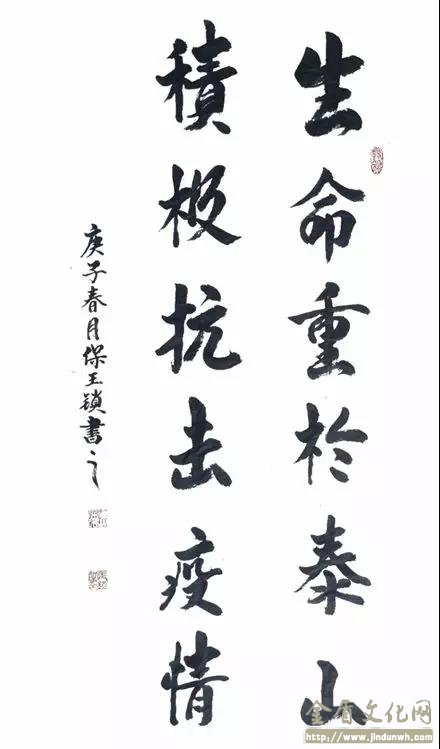 生命重於泰山
積极抗击疫情
庚子春月保王锁書之
金盾文化网
http://www.jindunwh.com